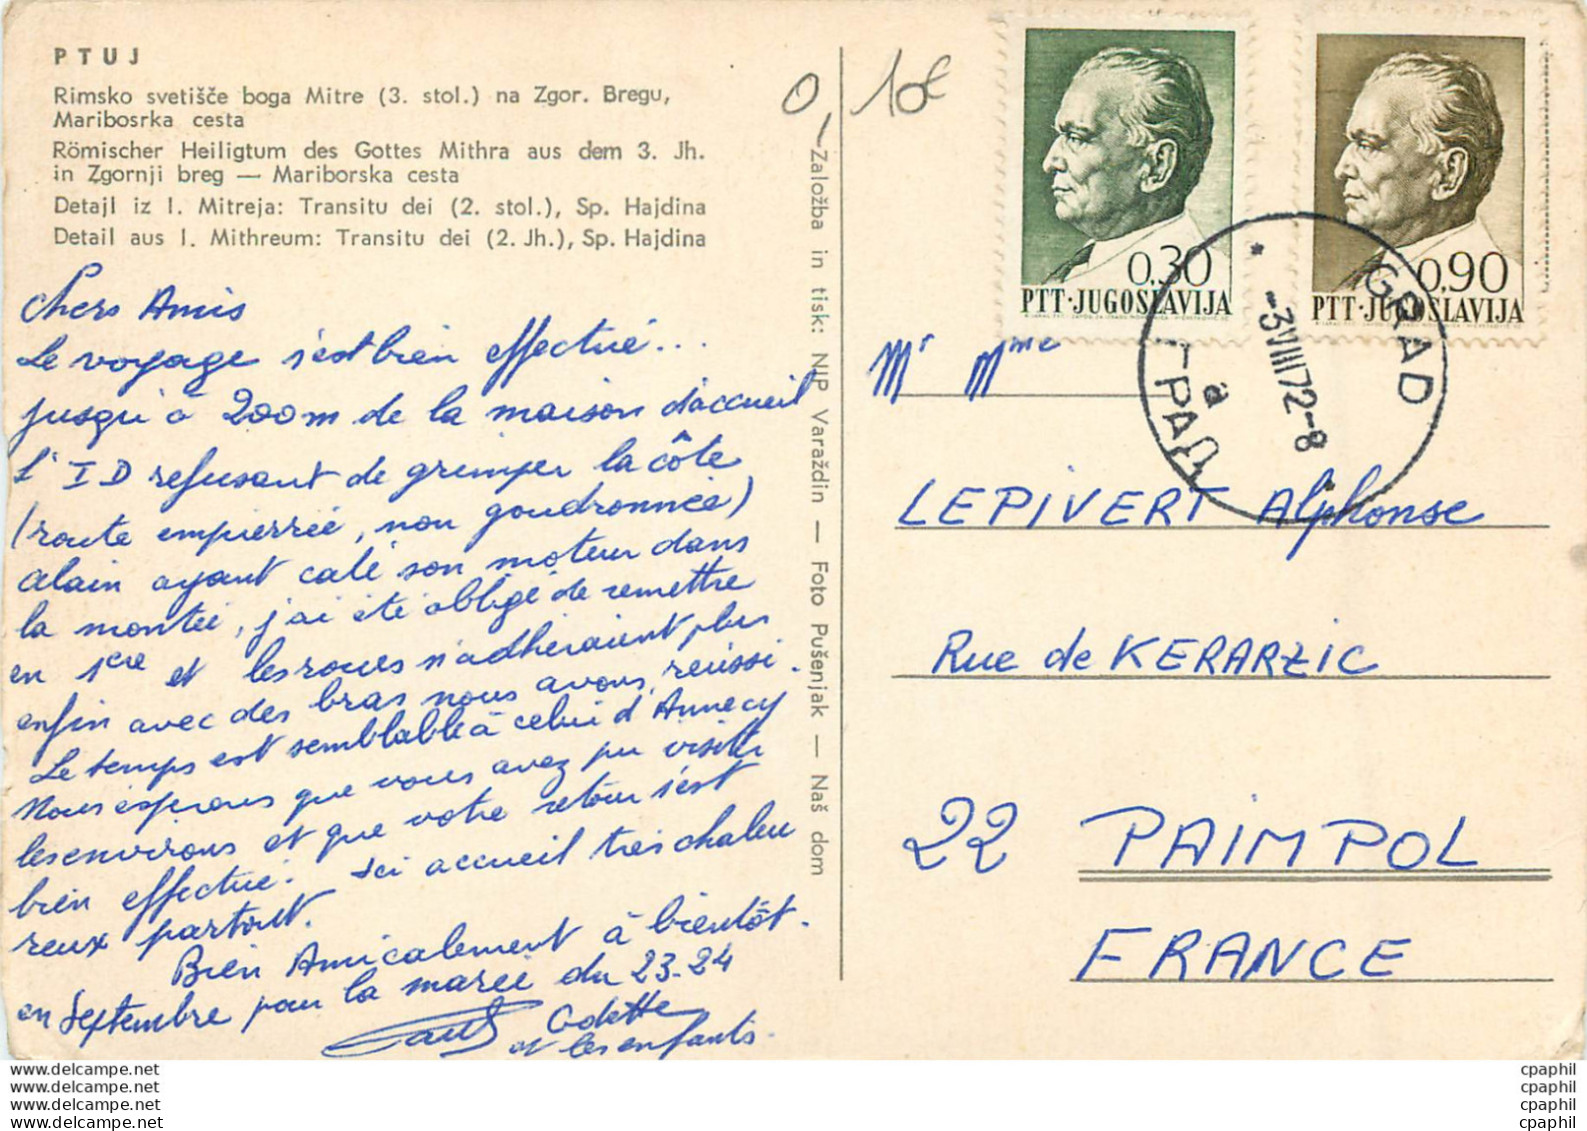 PTUJ
Rimsko svetišče boga Mitre (3. stol.) na Zgor. Bregu,
Maribosrka cesta
Römischer Heiligtum des Gottes Mithra aus dem 3. Jh.
in Zgornji breg — Mariborska cesta
Detajl iz I. Mitreja: Transitu dei (2. stol.), Sp. Hajdina
Detail aus I. Mithreum: Transitu dei (2. Jh.), Sp. Hajdina
Chers Amis
Le voyage s'est bien effectué...
jusqu'à 200m de la maison d'accueil
l'ID refusant de grimper la côte
(route empierrée, non goudronnée)
alain ayant calé son moteur dans
la montée, j'ai été obligé de remettre
en 1ere et les roues n'adhéraient plus
enfin avec des bras nous avons réussi.
Le temps est semblable à celui d'Annecy
Nous espérons que vous avez pu visiter
les environs et que votre retour s'est
bien effectué. Ici accueil très chaleu
reux partout.
Bien Amicalement à bientôt.
en Septembre pour la marée du 23-24
Odette
et les enfants.
Založba in tisk: NIP Varaždin — Foto Pušenjak — Naš dom
0,10€
0,30
PTT·JUGOSLAVIJA
0,90
PTT·JUGOSLAVIJA
GRAD
-3VIII72-8
a
ГРАД
Mr Mme
LEPIVERT Alphonse
Rue de KERARZIC
22 PAIMPOL
FRANCE
delcampe.net
delcampe.net
delcampe.net
delcampe.net
cpaphil
cpaphil
cpaphil
cpaphil